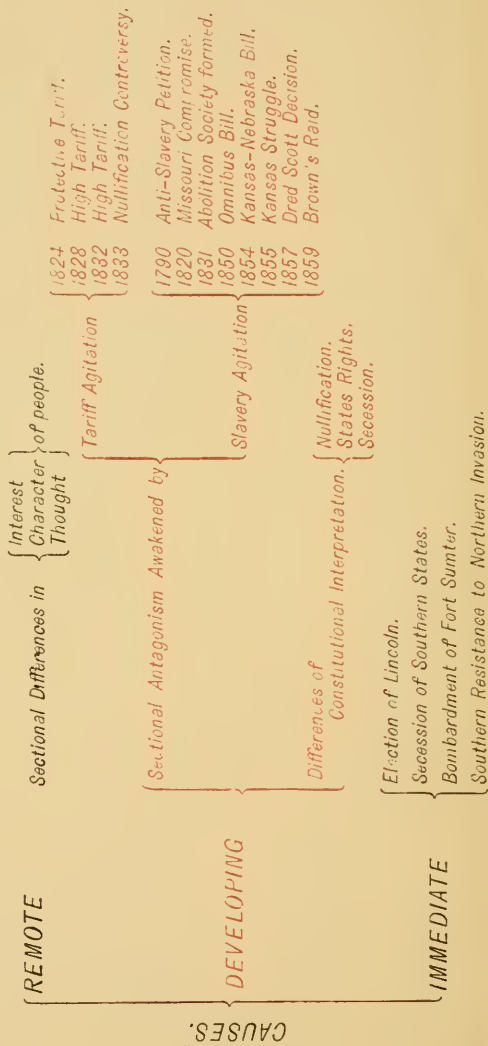 CAUSES.
REMOTE
Sectional Differences in
Interest
Character
Thought
of people.
DEVELOPING
Sectional Antagonism Awakened by
Tariff Agitation
1824 Protective Tariff.
1828 High Tariff.
1832 High Tariff.
1833 Nullification Controversy.
Slavery Agitation
1790 Anti-Slavery Petition.
1820 Missouri Compromise.
1831 Abolition Society formed.
1850 Omnibus Bill.
1854 Kansas-Nebraska Bill.
1855 Kansas Struggle.
1857 Dred Scott Decision.
1859 Brown's Raid.
Differences of
Constitutional Interpretation.
Nullification.
States Rights.
Secession.
IMMEDIATE
Election of Lincoln.
Secession of Southern States.
Bombardment of Fort Sumter.
Southern Resistance to Northern Invasion.